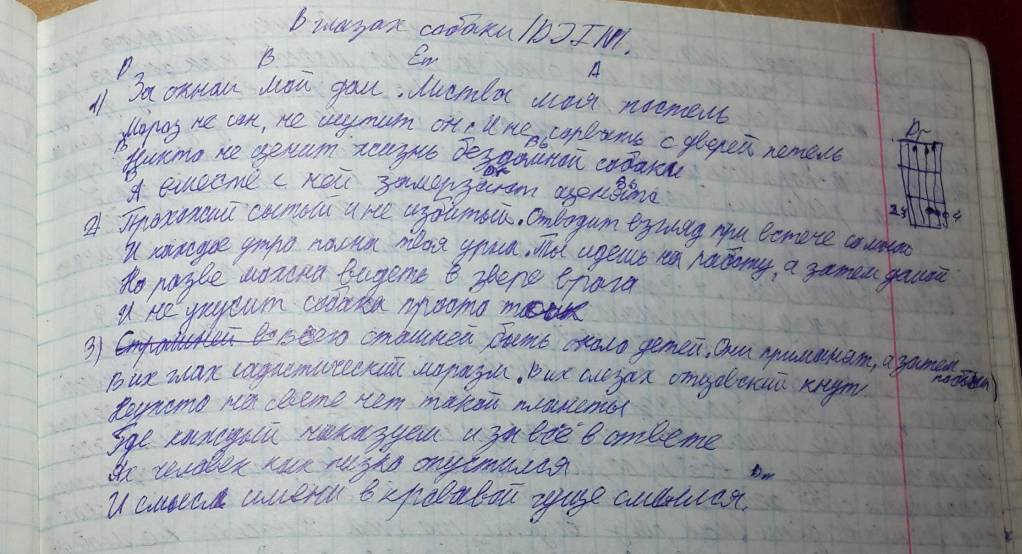 В глазах собаки
D B Em A
1) За окном мой дом. Листва моя постель
Мороз не сон, не шутит он. И не сорвать с дверей петель
B Bb
Никто не ценит жизнь бездомной собаки
Bb
А вместе с ней замерзают щенята
2) Прохожий сытый и не избитый. Отводит взгляд при встече со мною
И каждое утро полна твоя урна. Ты идешь на работу, а затем домой
Но разве можна видеть в звере врага
И не укусит собака просто
3) Страшней всего сташней быть около детей. Они приманят, а затем
В их глах садистический маразм. В их слезах отцовский кнут
Неужто на свете нет такой планеты
Где каждый наказуем и за всё в ответе
Ах человек как низко опустился
Dm
И смысл имени в кровавой гуще смылся.